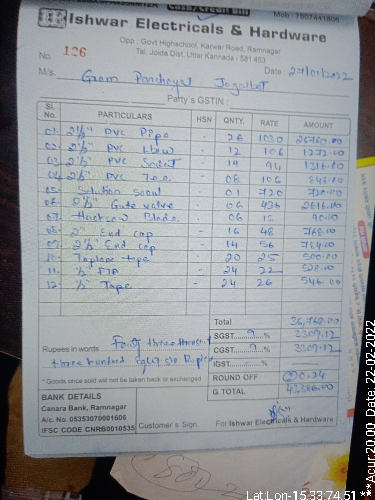 Cash/Credit Bill
Mob: 7807441606
Ishwar Electricals & Hardware
Opp. Govt Highschool, Karwar Road, Ramnagar
Tal. Joida Dist. Uttar Kannada - 581 453
No. 126
Date: 22/01/2022
M/s. Gram Panchayat
Party's GSTIN :
Sl. No. PARTICULARS HSN QNTY. RATE AMOUNT
01. 2½" PVC Pipe - 26 1030 26780.00
02. 2½" PVC Lbow - 12 106 1272.00
03. 2½" PVC Soket - 14 94 1316.00
04. 2½" PVC Tee - 08 106 848.00
05. Solution - 01 720 720.00
06. 2½" Gate valve - 06 436 2616.00
07. Hacksaw Blade - 06 15 90.00
08. 2" End cap - 16 48 768.00
09. 2½" End cap - 14 56 784.00
10. tape - 20 25 500.00
11. ½" FTA - 24 22 528.00
12. ½" Tape - 24 26 546.00
Total 36,768.00
SGST 9 % 3309.12
CGST 9 % 3309.12
IGST %
ROUND OFF 0.24
G TOTAL 43386.00
Rupees in words
three hundred eighty six Rupees
* Goods once sold will not be taken back or exchanged
BANK DETAILS
Canara Bank, Ramnagar
A/c. No. 05353070001606
IFSC CODE CNRB0010535
Customer's Sign.
For Ishwar Electricals & Hardware
Lat:Lon-15.33:74.51
***Acur 20.00, Date, 22-02-2022